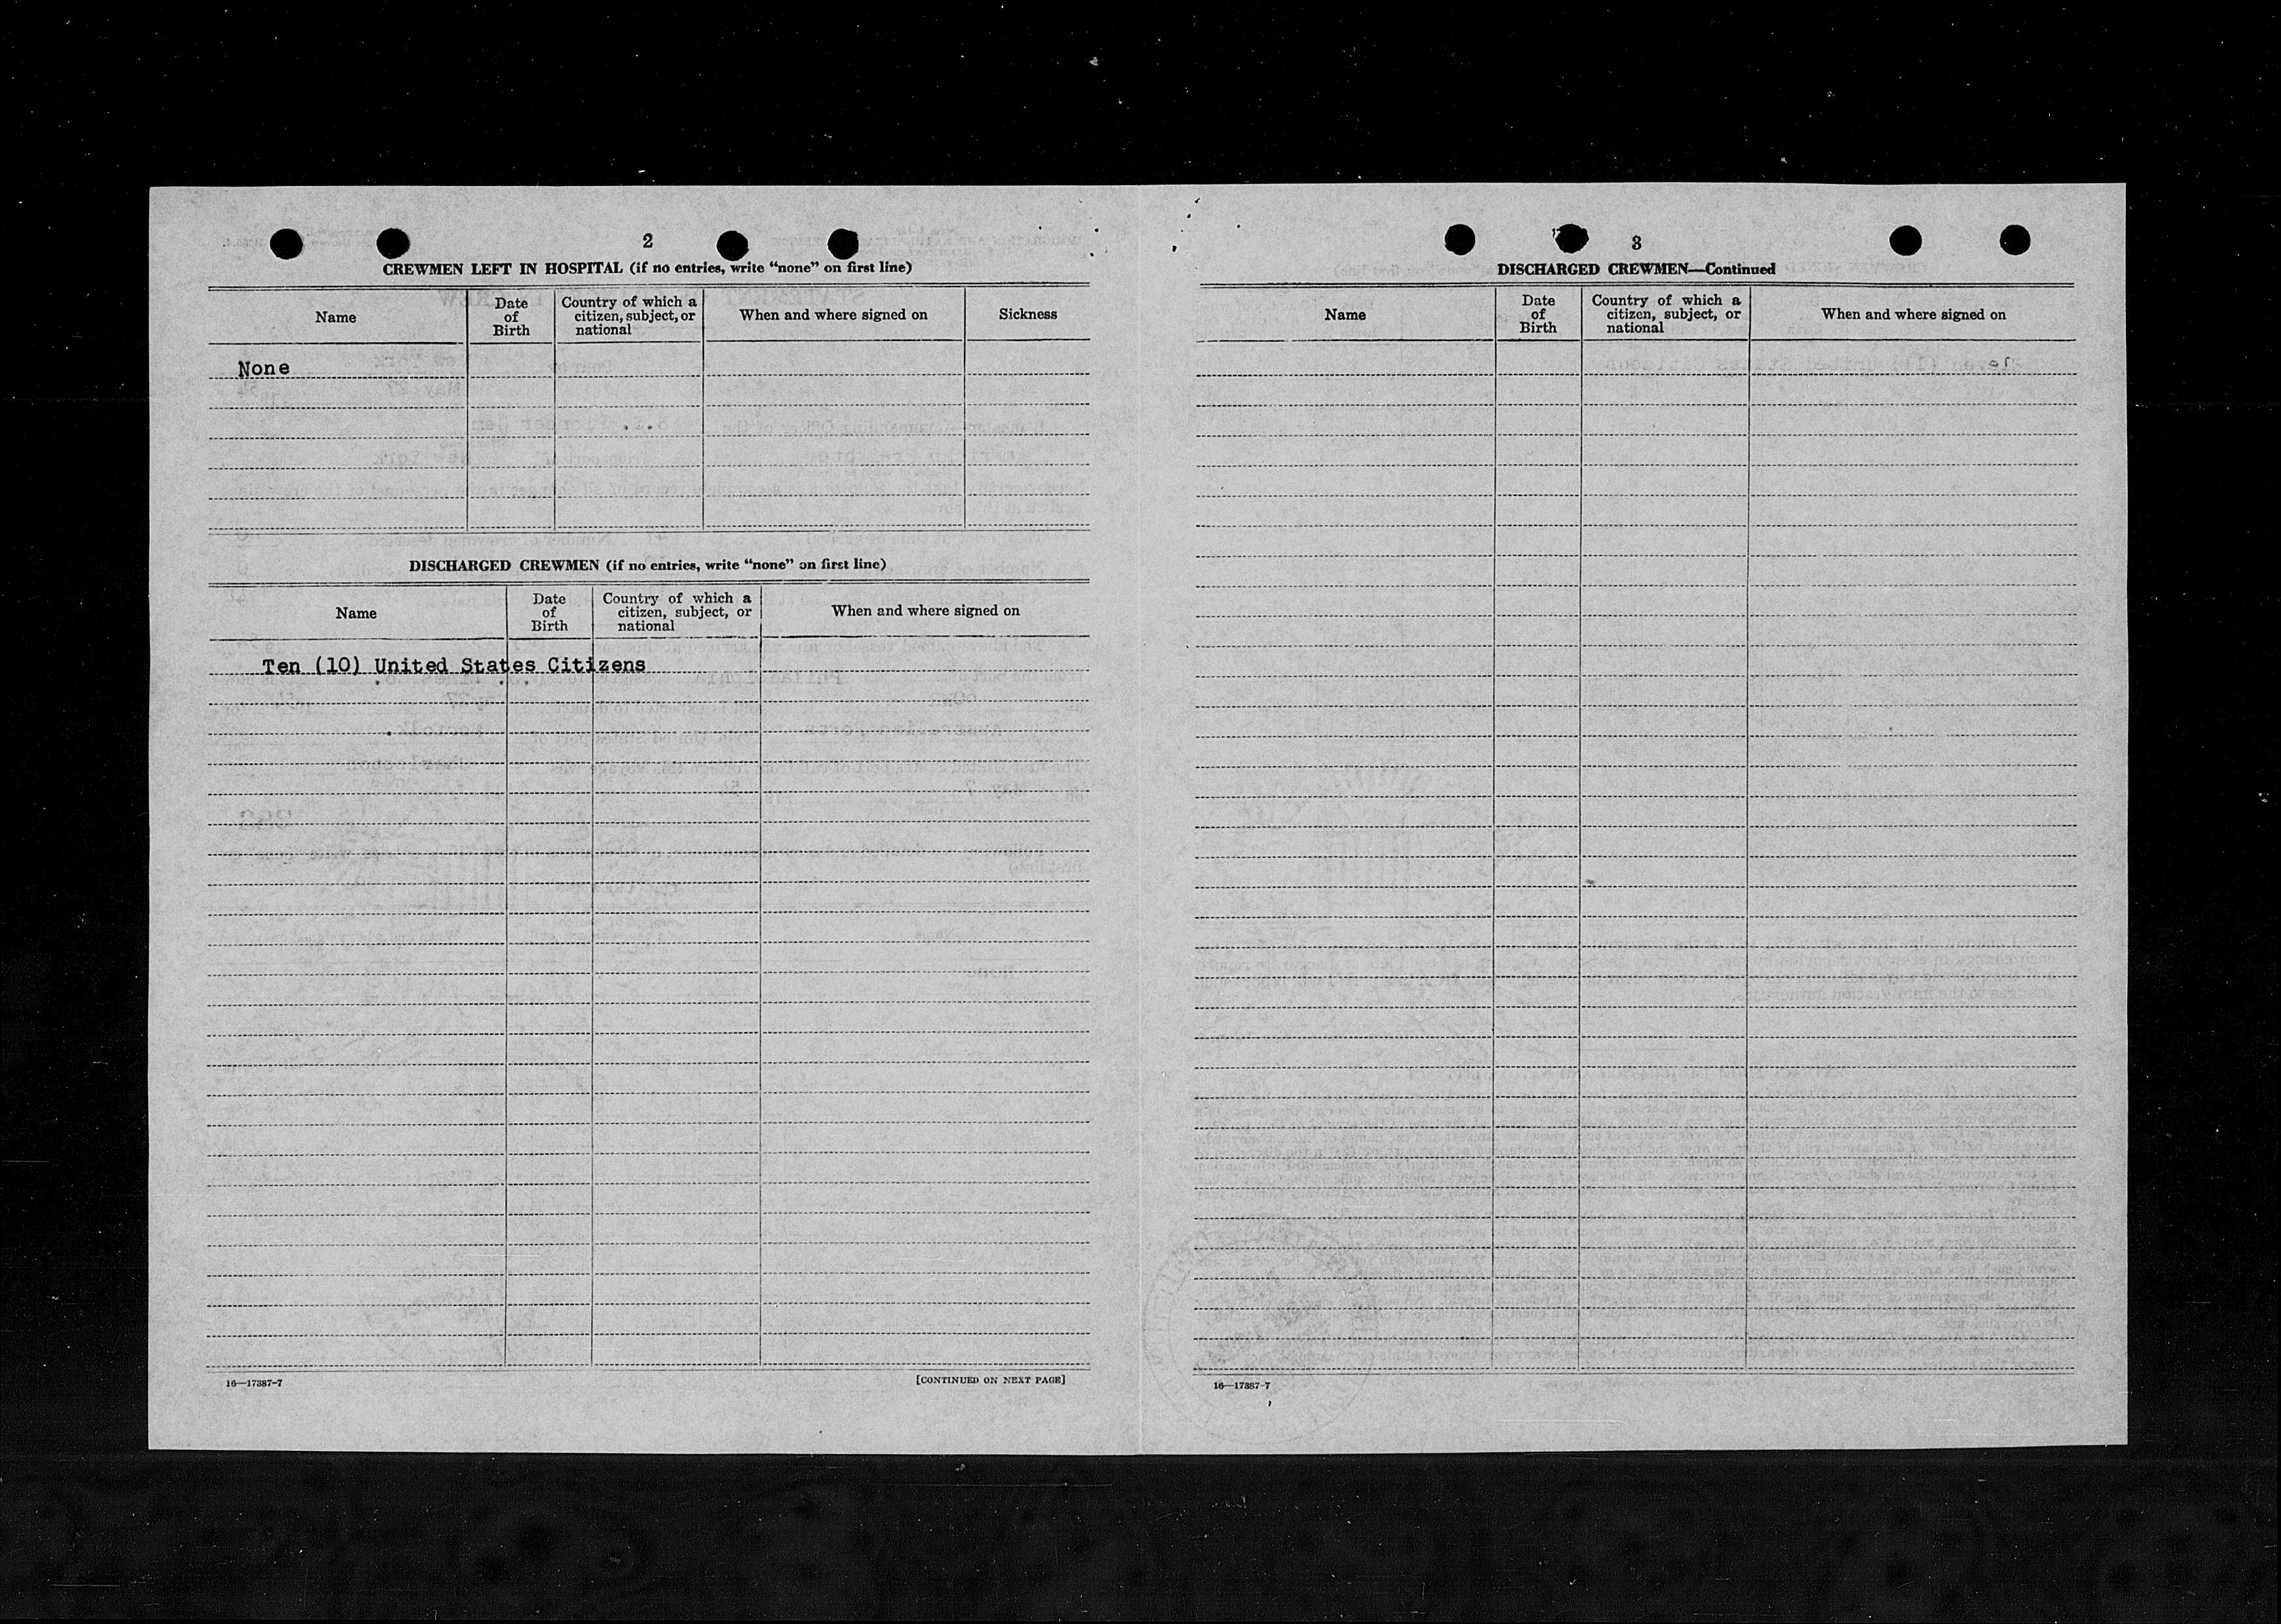 2
CREWMEN LEFT IN HOSPITAL (if no entries, write “none” on first line)
Name
Date of Birth
Country of which a citizen, subject, or national
When and where signed on
Sickness
None
DISCHARGED CREWMEN (if no entries, write “none” on first line)
Name
Date of Birth
Country of which a citizen, subject, or national
When and where signed on
Ten (10) United States Citizens
16—17387-7
[CONTINUED ON NEXT PAGE]
3
DISCHARGED CREWMEN—Continued
Name
Date of Birth
Country of which a citizen, subject, or national
When and where signed on
16—17387-7